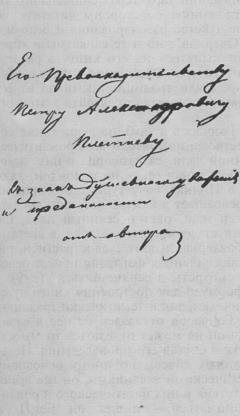 Его Превосходительству
Петру Александровичу
Плетневу
въ знакъ душевнаго уваженія
и преданности
отъ автора